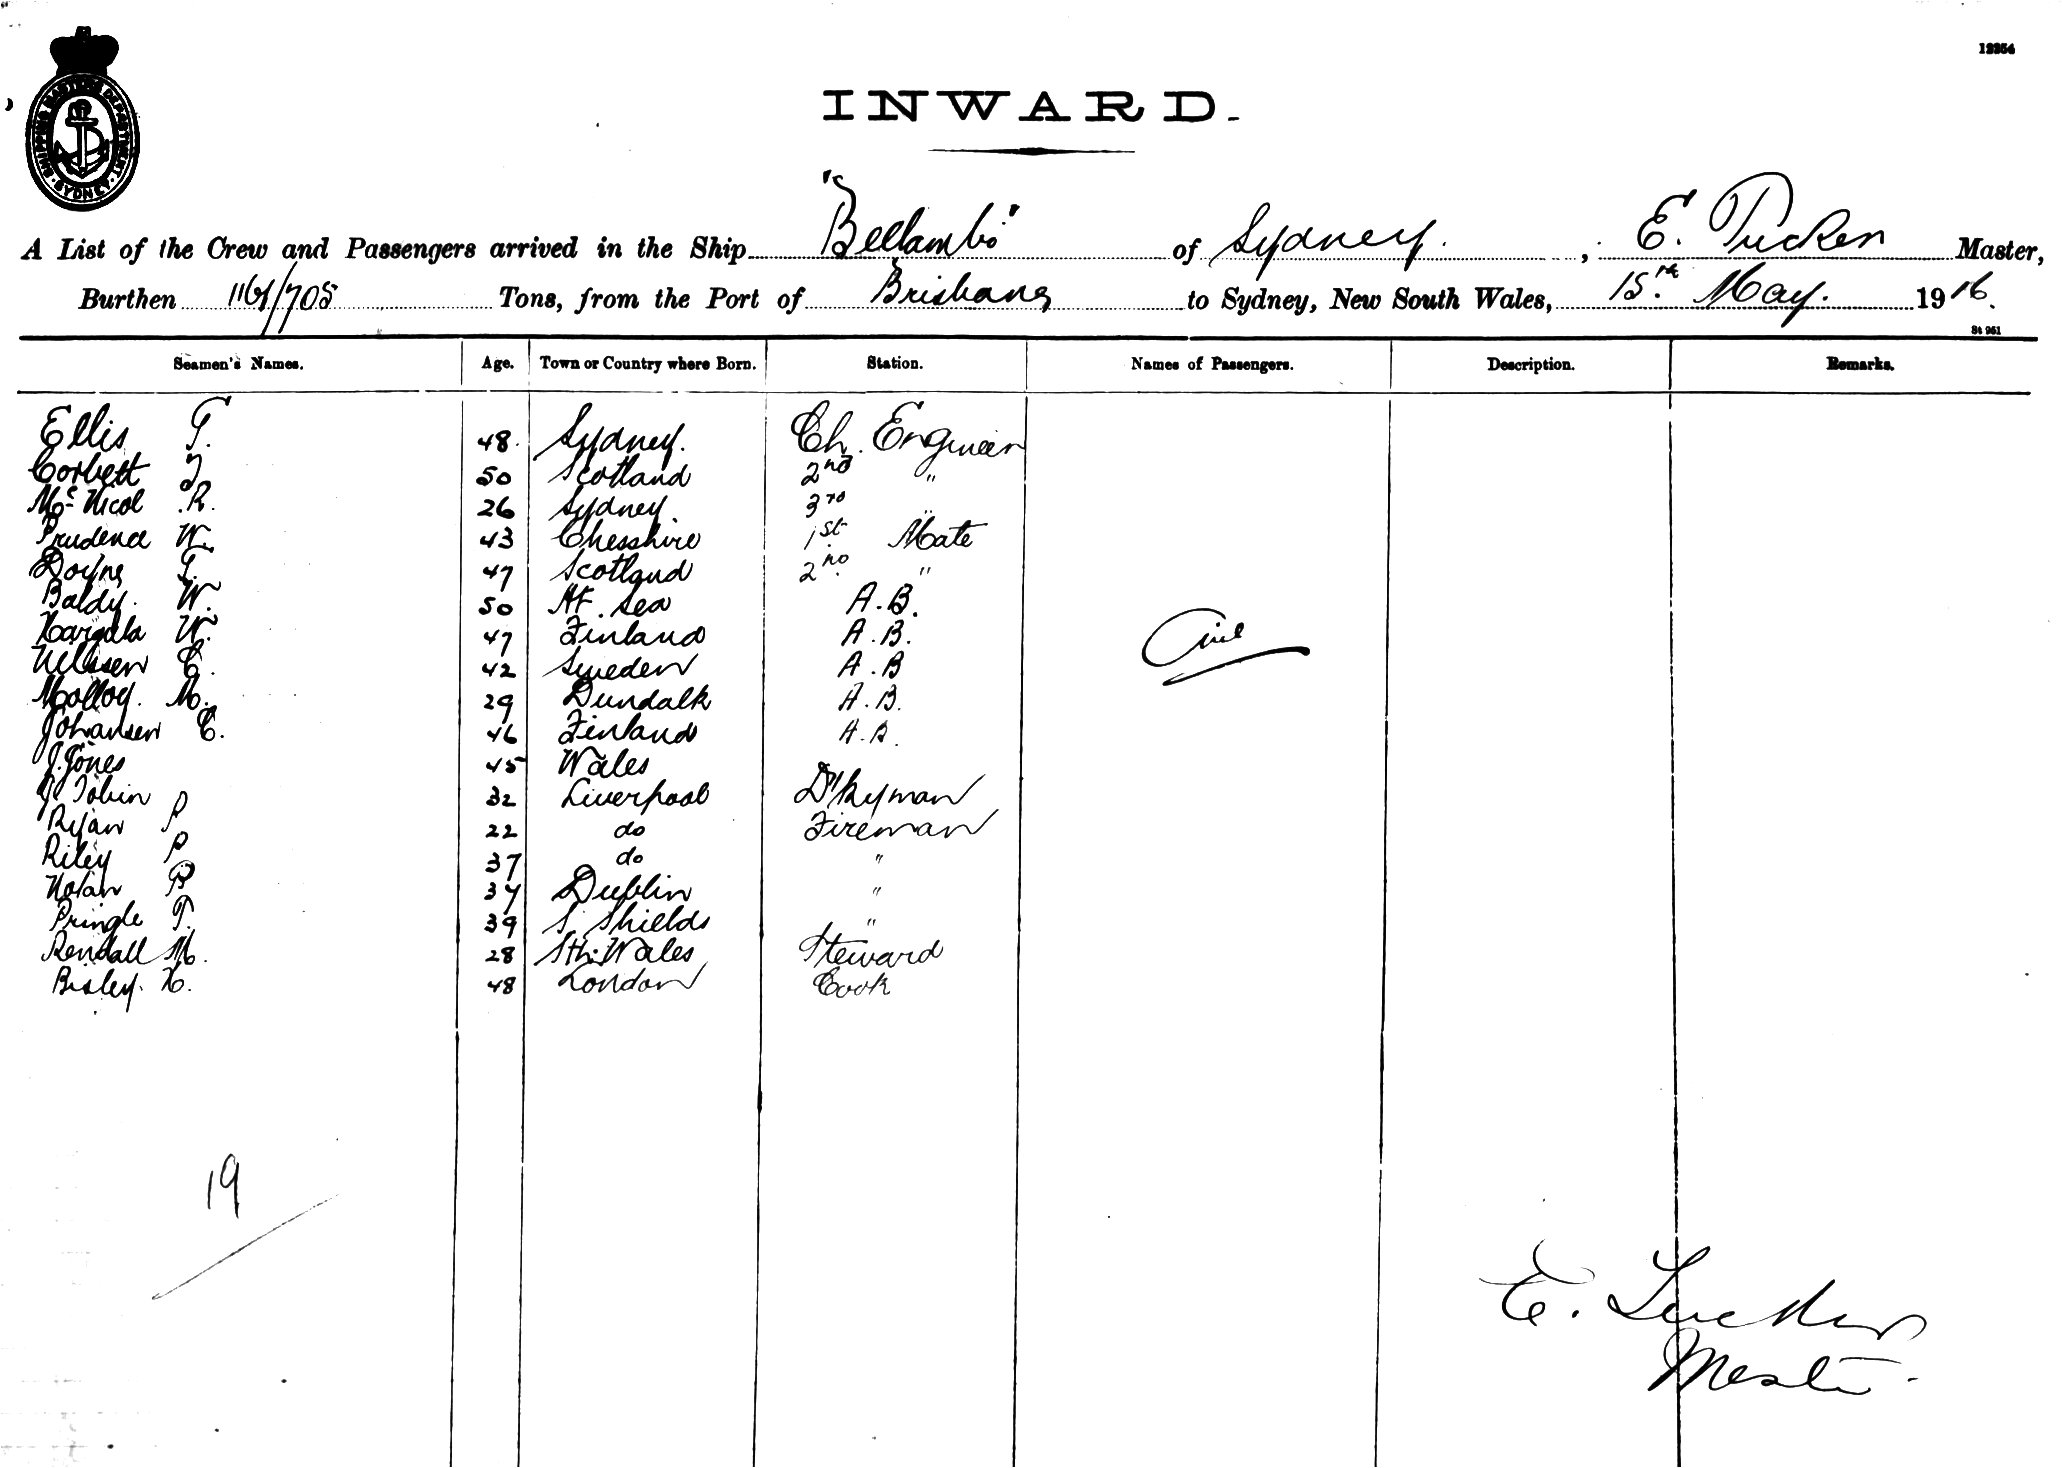 12254
SHIPPING MASTERS DEPARTMENT SYDNEY
INWARD.
A List of the Crew and Passengers arrived in the Ship "Bellambi" of Sydney, E. Tucker Master,
Burthen 1161/705 Tons, from the Port of Brisbane to Sydney, New South Wales, 15th May. 1916.
St 961
Seamen's Names. Age. Town or Country where Born. Station. Names of Passengers. Description. Remarks.
Ellis T. 48. Sydney. Ch. Engineer
Corbett J 50 Scotland 2nd "
McNicol R. 26 Sydney. 3rd "
Prudence W. 43 Chesshire 1st Mate
Doyne T. 47 Scotland 2nd "
Baldy. W. 50 At sea A.B.
W. 47 Finland A.B.
Nilssen C. 42 Sweden A.B
Molloy. M. 29 Dundalk A.B.
Johansen C. 46 Finland A.B.
J. Jones 45 Wales
J. Tobin 32 Liverpool D'kyman
Ryan P 22 do Fireman
Riley P 37 do "
Nolan P 34 Dublin "
Pringle T. 39 S. Shields "
Rendall M. 28 Sth. Wales Steward
Bisley. H. 48 London Cook
19
E. Tucker
Master